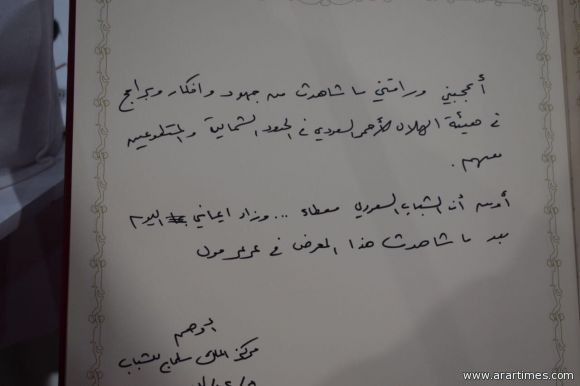 أعجبني وراقني ما شاهدت من جهود وافكار وبرامج
في هيئة الهلال الأحمر السعودي في الحدود الشمالية والمتطوعين
معهم.
أؤمن أن الشباب السعودي معطاء ... وزاد ايماني اليوم
بعد ما شاهدت هذا المعرض في عرعر مول
مركز الملك سلمان للشباب
www.arartimes.com